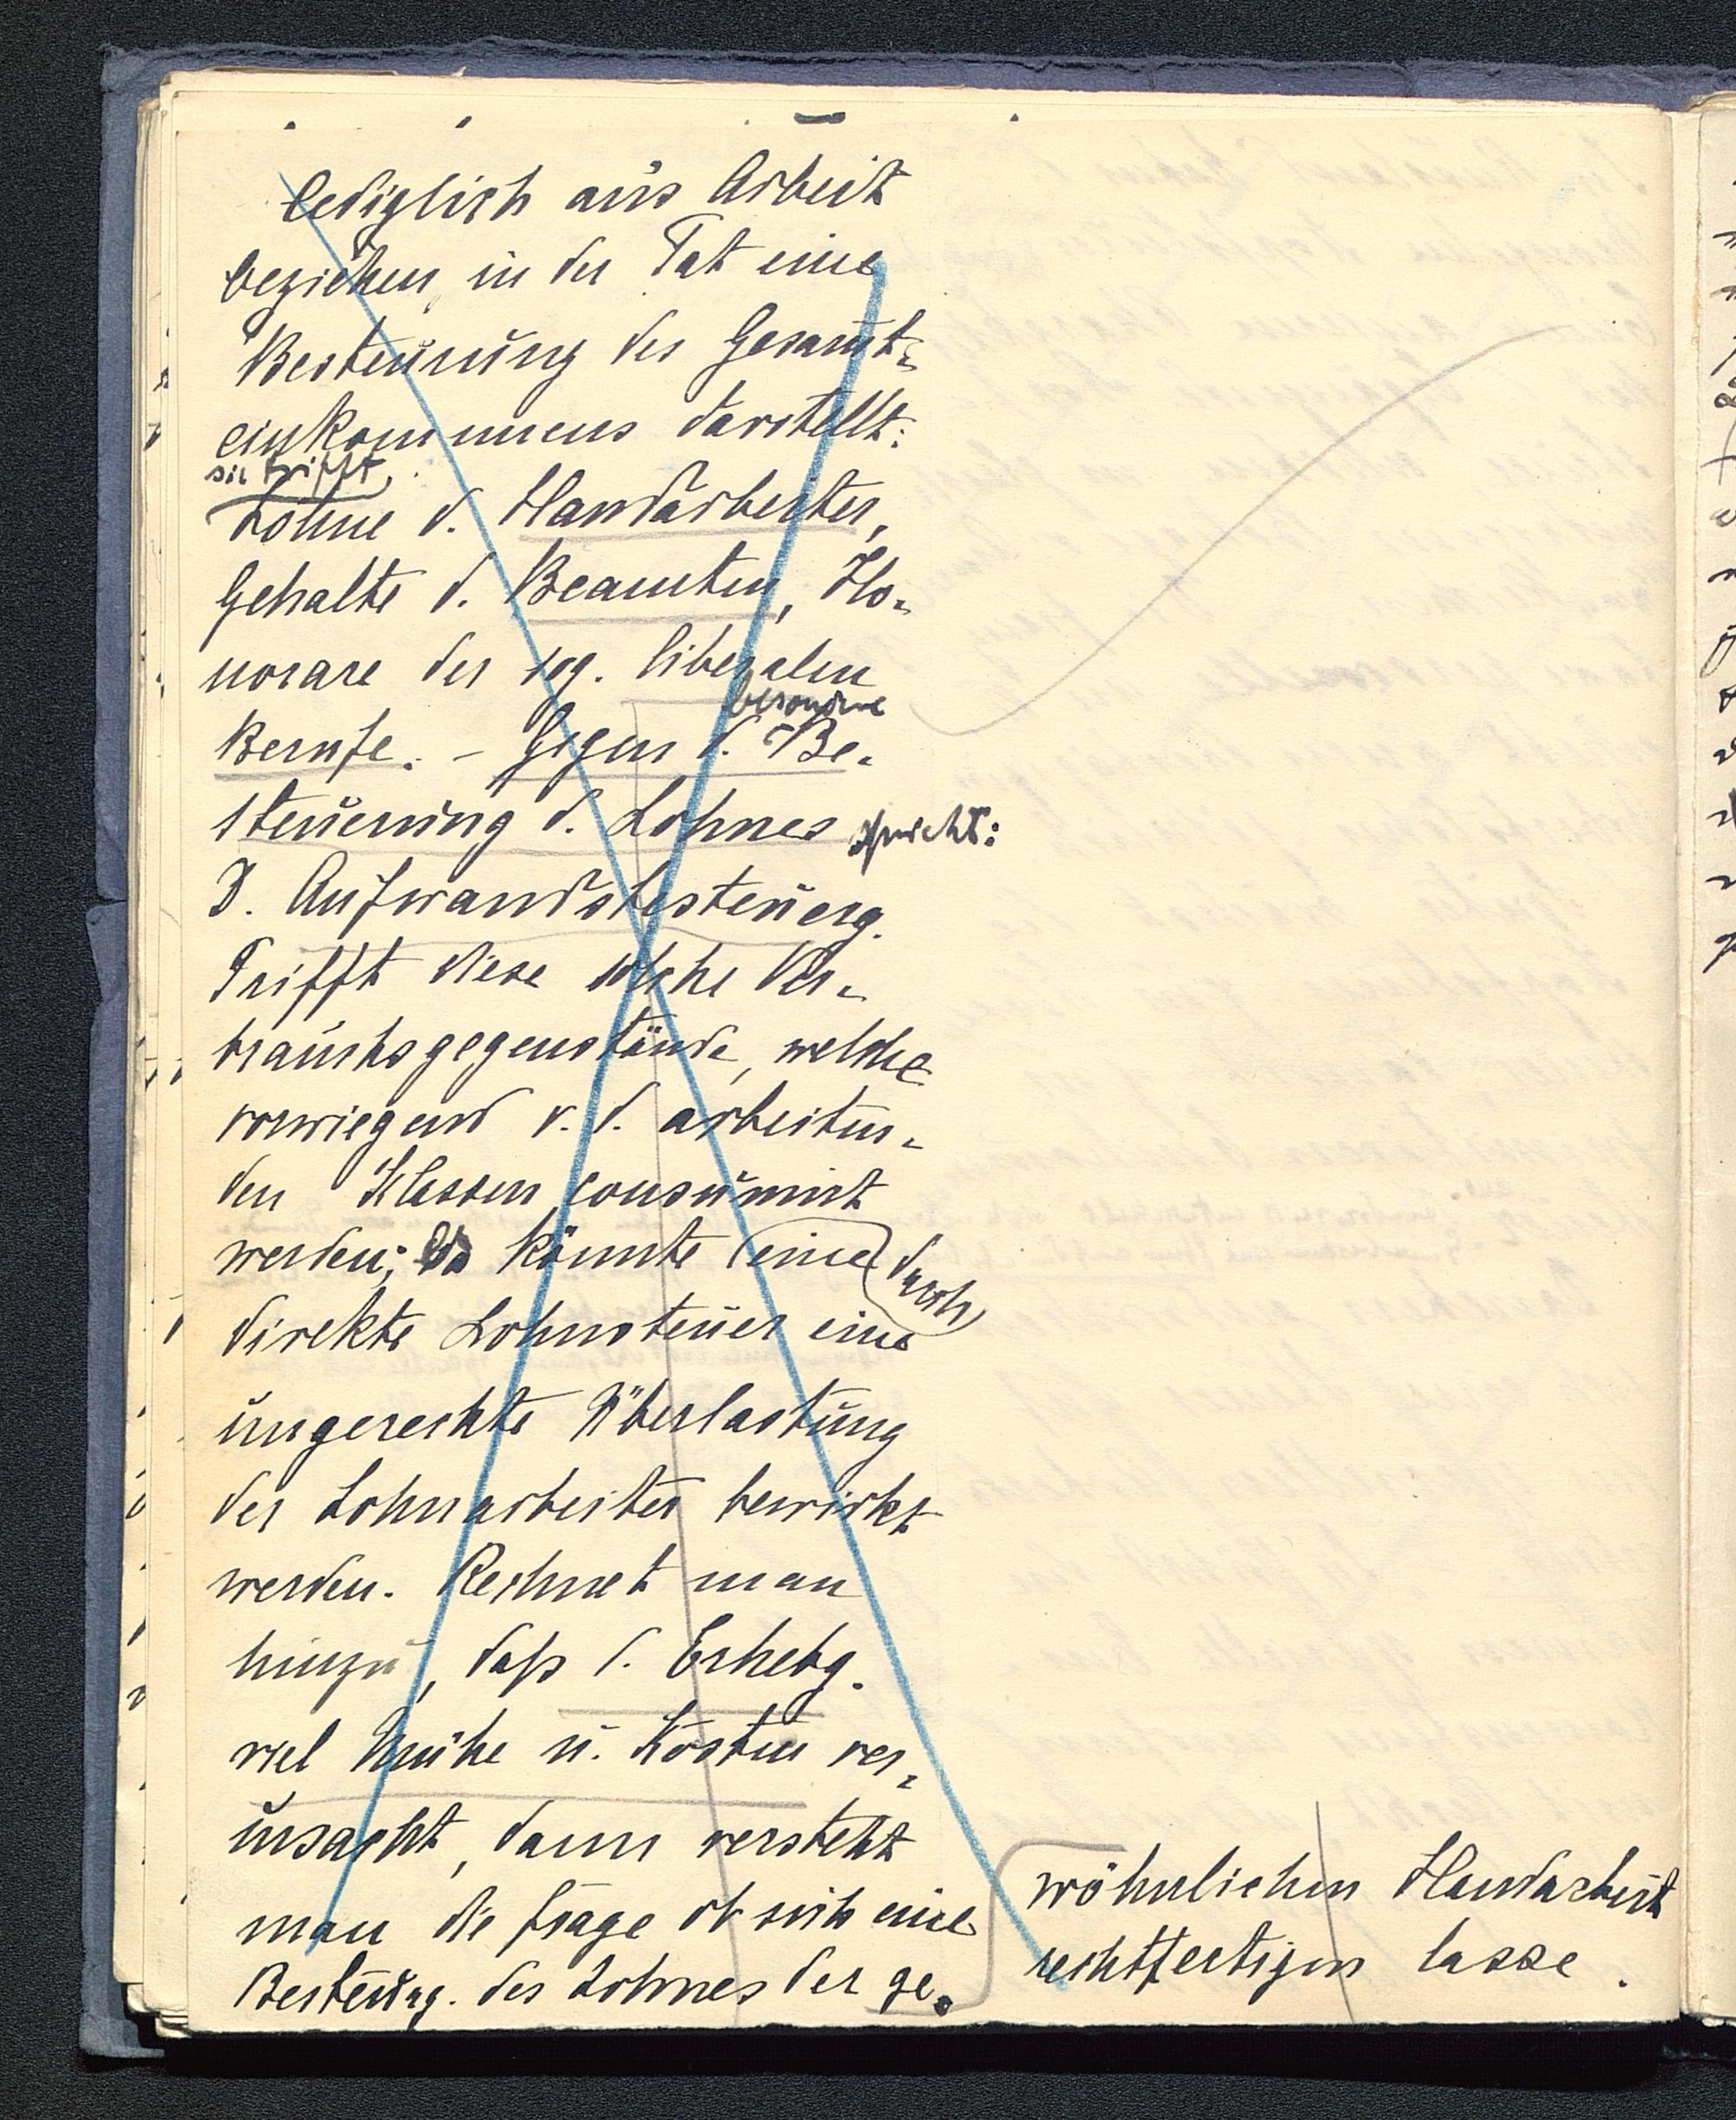 lediglich aus Arbeit
beziehen, in der Tat eine
Besteuerung des Gesamt-
einkommens darstellt:
sie trifft
Löhne d. Handarbeiter,
Gehalte d. Beamten, Ho-
norare der sog. liberalen
besondere
Berufe. – Gegen d. Be-
steuerung d. Lohnes spricht:
D. Aufwandsbesteuerg.
Trifft diese solche Ver-
brauchsgegenstände, welche
vorwiegend v. d. arbeiten-
den Klassen consumirt
werden; so könnte (eine) durch
direkte Lohnsteuer eine
ungerechte Überlastung
der Lohnarbeiter bewirkt
werden. Rechnet man
hinzu, daß d. Erhebg.
viel Mühe u. Kosten ver-
ursacht, dann versteht
man die Frage ob sich eine
Besteurg. des Lohnes der ge-
wöhnlichen Handarbeit
rechtfertigen lasse.